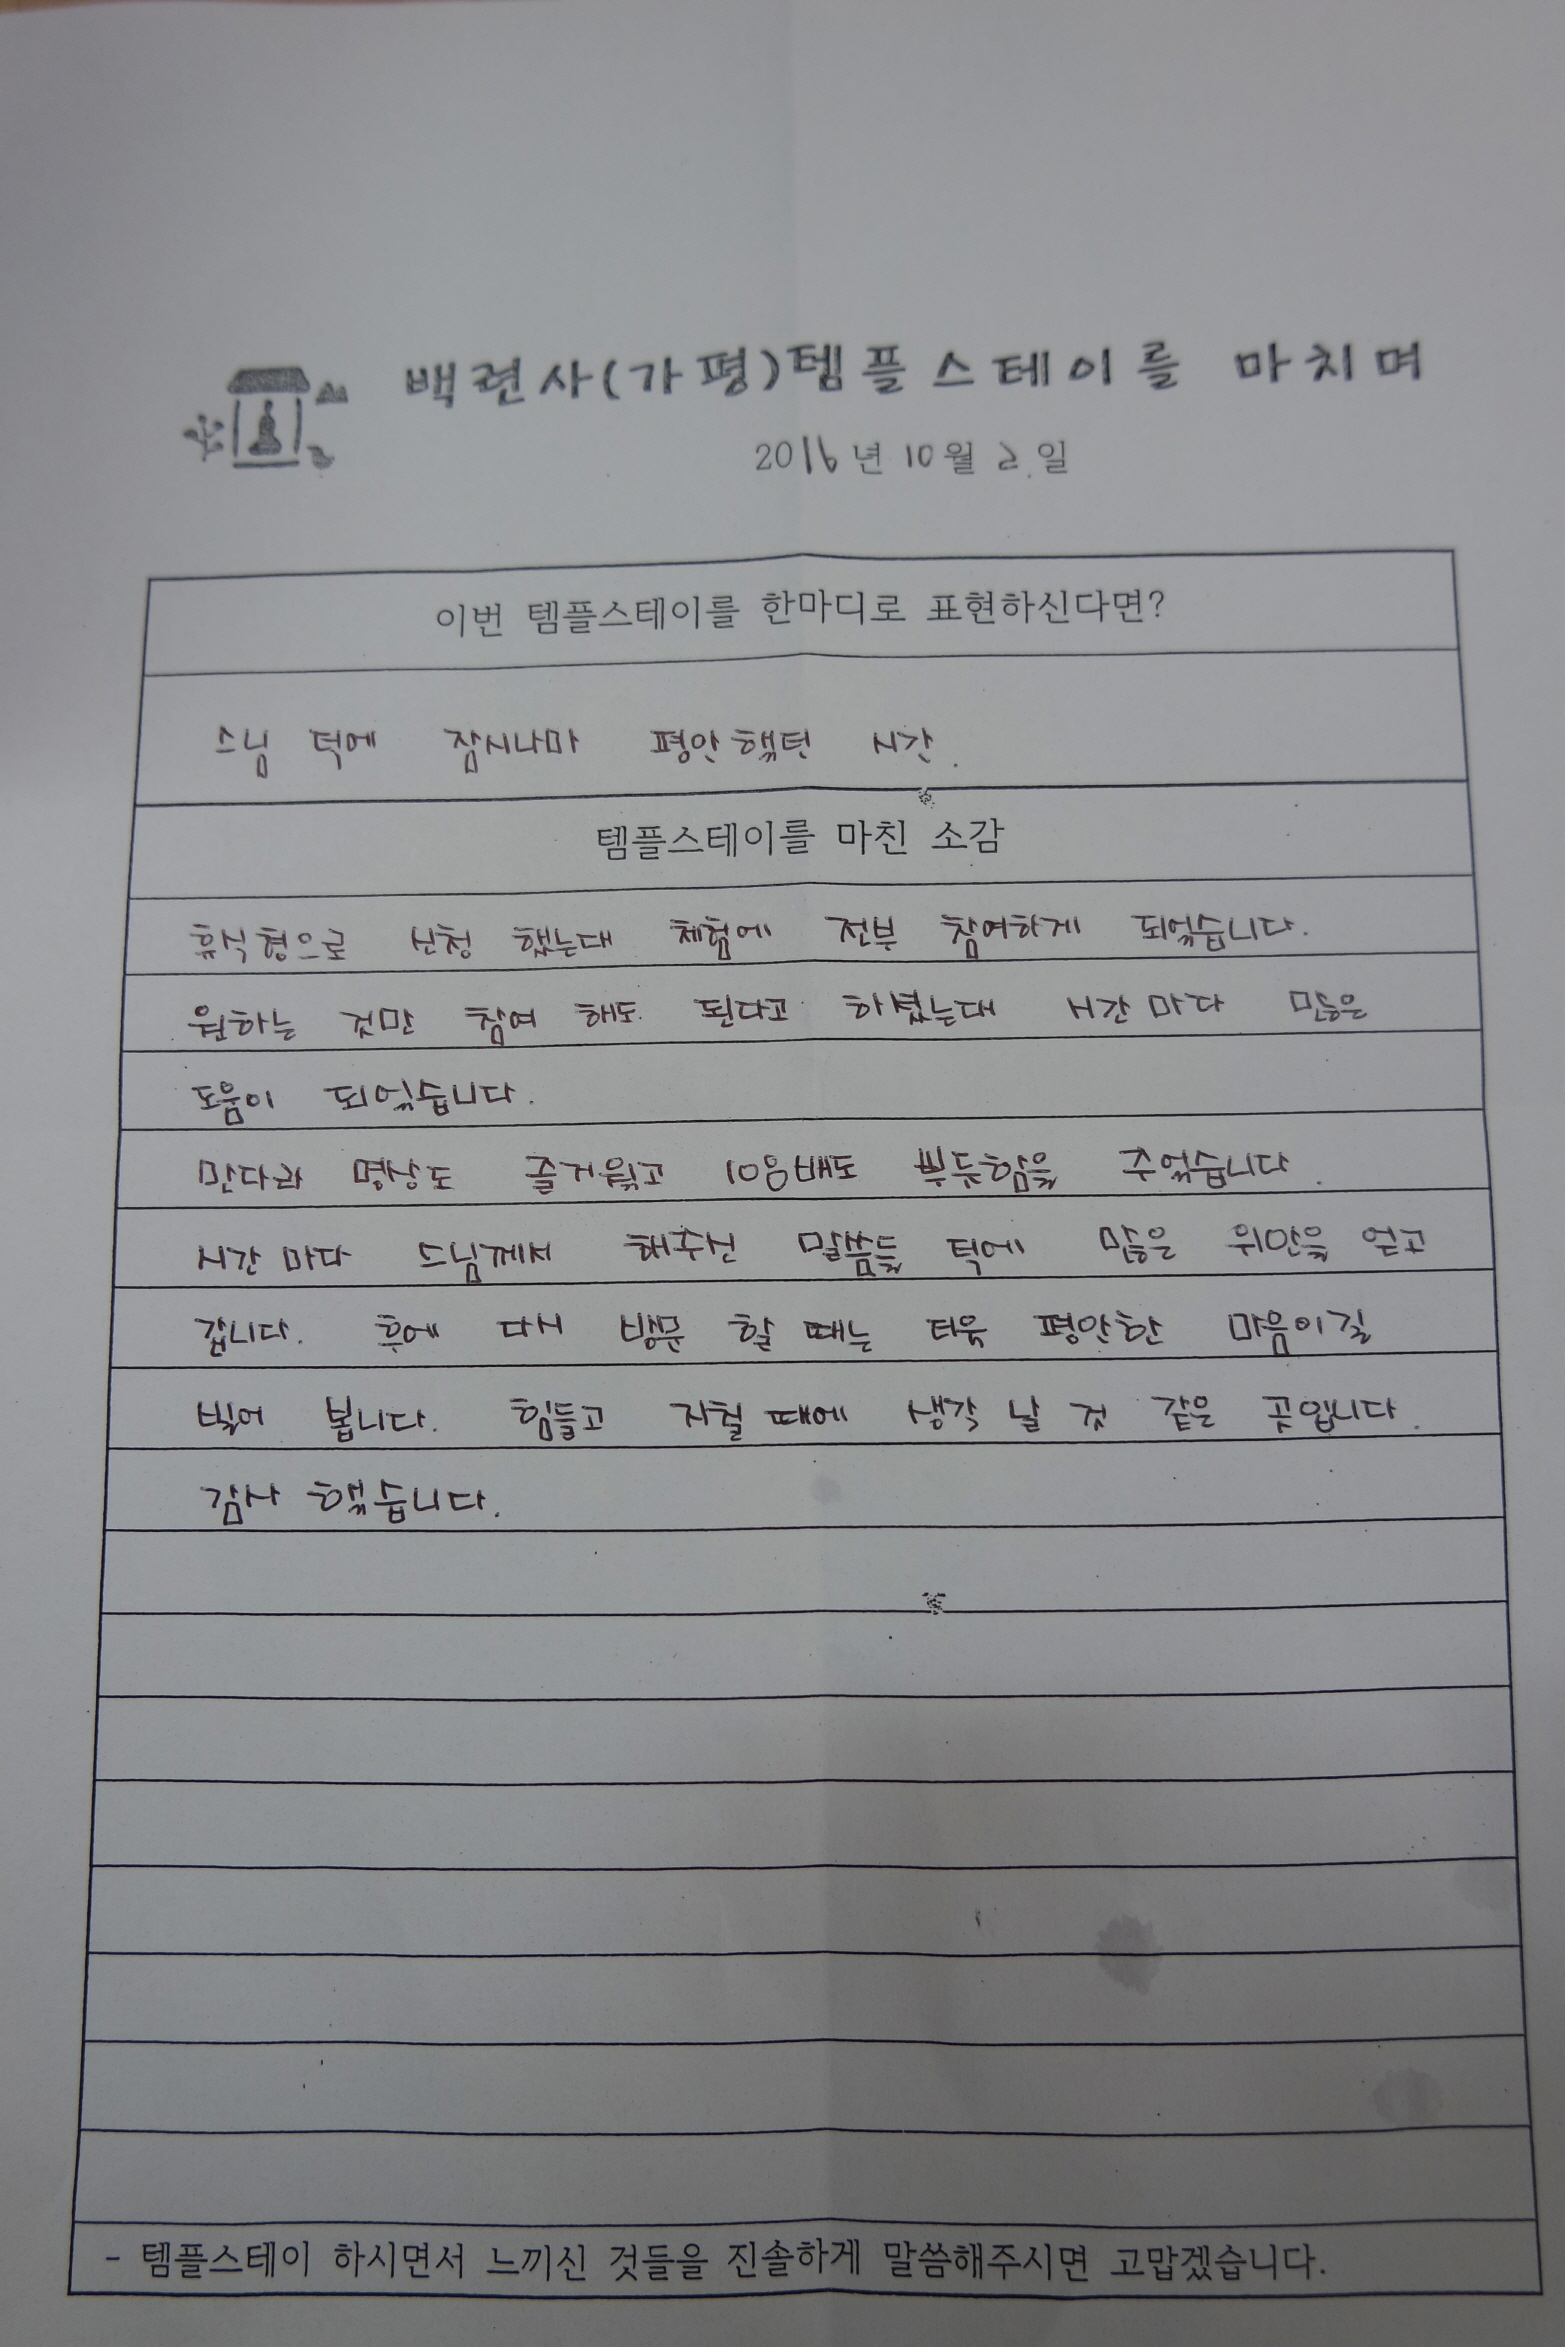 백련사(가평)템플스테이를 마치며
2016년 10월 2일
이번 템플스테이를 한마디로 표현하신다면?
스님 덕에 잠시나마 평안했던 시간.
템플스테이를 마친 소감
휴식형으로 신청 했는대 체험에 전부 참여하게 되었습니다.
원하는 것만 참여 해도 된다고 하셨는대 시간 마다 많은
도움이 되었습니다.
만다라 명상도 즐거웠고 108배도 뿌듯함을 주었습니다.
시간 마다 스님께서 해주신 말씀들 덕에 많은 위안을 얻고
갑니다. 후에 다시 방문 할 때는 더욱 평안한 마음이길
빌어 봅니다. 힘들고 지칠 때에 생각 날 것 같은 곳입니다.
감사 했습니다.
- 템플스테이 하시면서 느끼신 것들을 진솔하게 말씀해주시면 고맙겠습니다.